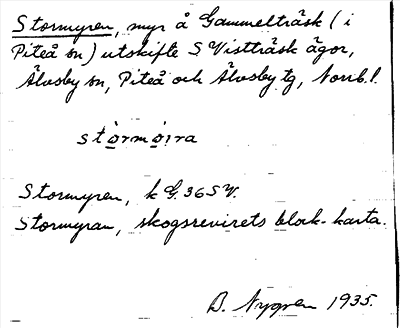 Stormyren, myr å Gammelträsk (i
Piteå sn) utskifte S Vistträsk ägor,
Älvsby sn, Piteå och Älvsby tg, Norrb. l.
Stormyren, k G. 36 SV.
Stormyran, skogsrevirets block-karta.
B. Nygren 1935.